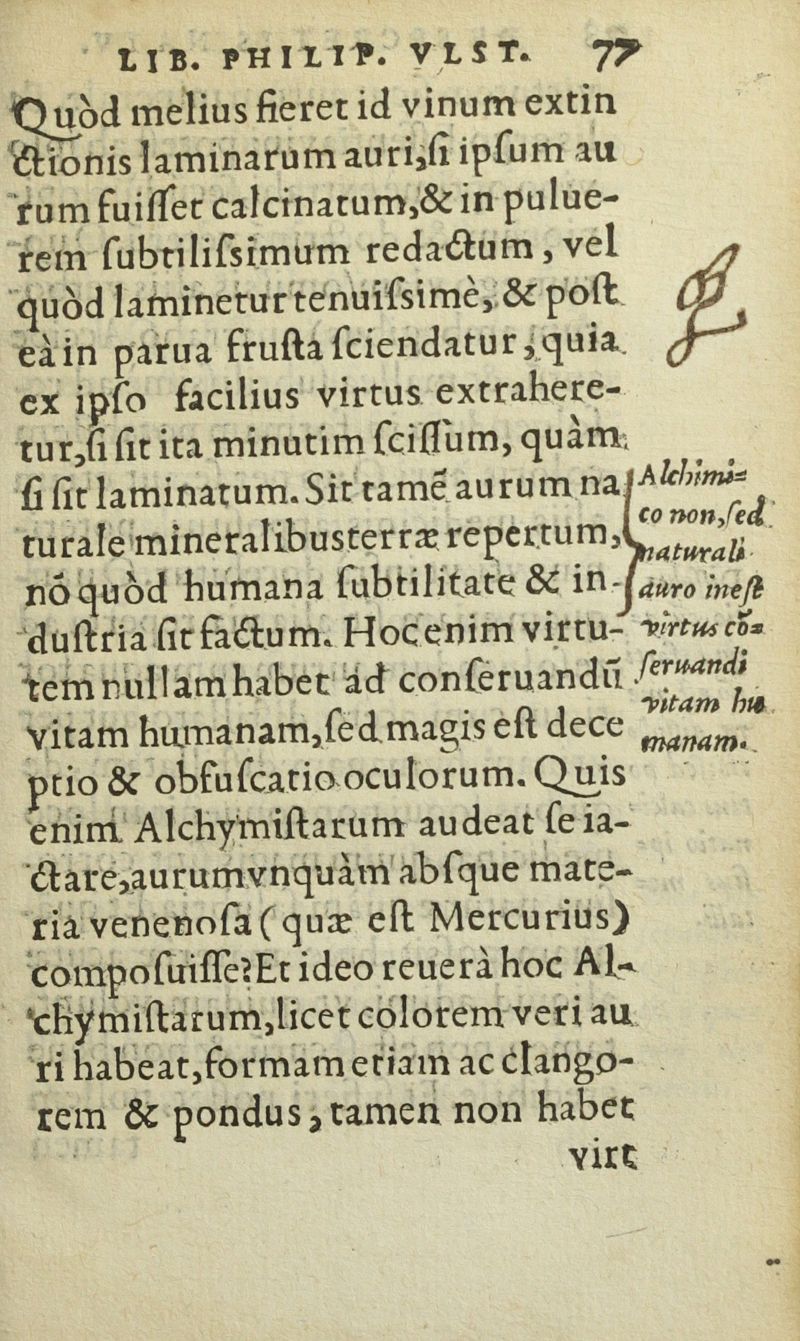 LIB. PHILIP. VLST. 77
Quòd melius fieret id vinum extin
ctionis laminarum auri,ſi ipſum au
rum fuiſſet calcinatum,& in pulue-
rem ſubtiliſsimum redactum, vel
quòd laminetur tenuiſsimè, & poſt
eà in parua fruſta ſciendatur, quia
ex ipſo facilius virtus extrahere-
tur,ſi ſit ita minutim ſciſſum, quàm
ſi ſit laminatum. Sit tamẽ aurum na
turale mineralibus terræ repertum,
nõ quòd humana ſubtilitate & in-
duſtria ſit factum. Hoc enim virtu-
tem nullam habet ad conſeruandũ
vitam humanam,ſed magis eſt dece
ptio & obfuſcatio oculorum. Quis
enim Alchymiſtarum audeat ſe ia-
ctare,aurum vnquàm abſque mate-
ria venenoſa (quæ eſt Mercurius)
compoſuiſſe? Et ideo reuerà hoc Al-
chymiſtarum,licet colorem veri au
ri habeat,formam etiam ac clango-
rem & pondus, tamen non habet
virt
Alchimi-
co non,ſed
naturali
auro ineſt
virtus cõ-
ſeruandi
vitam hu
manam.